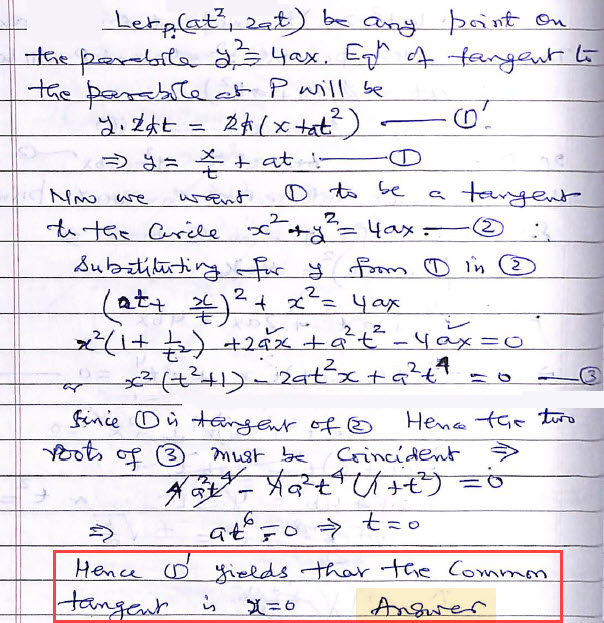 Let P(at², 2at) be any point on
the parabola y² = 4ax. Eqⁿ of tangent to
the parabola at P will be
y.2at = 2a(x+at²) —— ①'
⇒ y = x/t + at —— ①
Now we want ① to be a tangent
to the Circle x²+y² = 4ax —— ②
Substituting for y from ① in ②
(at + x/t)² + x² = 4ax
x²(1 + 1/t²) + 2ax + a²t² - 4ax = 0
or x²(t²+1) - 2at²x + a²t⁴ = 0 —— ③
Since ① is tangent of ② Hence the two
roots of ③ must be Coincident ⇒
4a²t⁴ - 4a²t⁴(1+t²) = 0
⇒ at⁶ = 0 ⇒ t = 0
Hence ①' yields that the Common
tangent is x=0 Answer